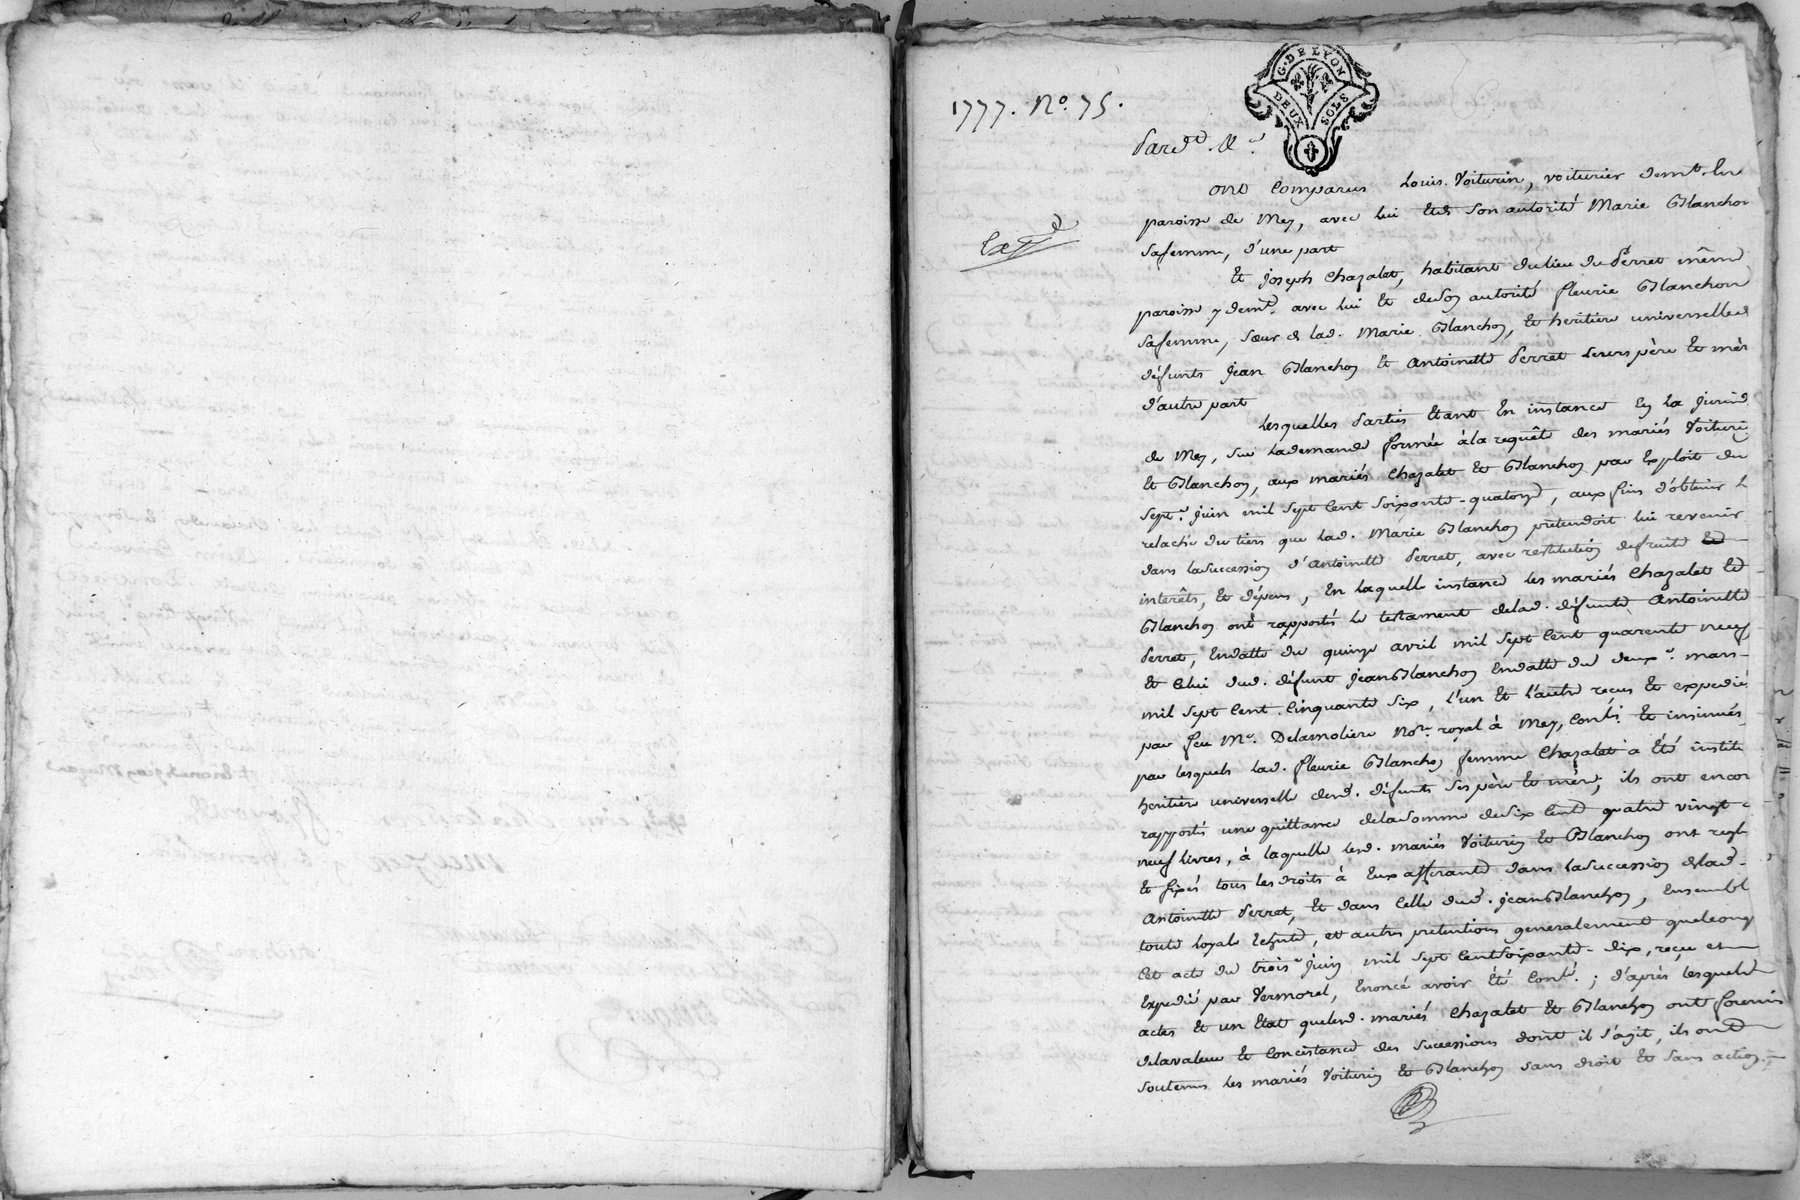 G. DE LYON
DEUX SOLS
1777. No. 75.
Pard.t &.
Exp.d
ont comparus Louis Voiturin, voiturier demt. en
paroisse de Mey, avec lui et de son autorité Marie Blanchon
sa femme, d'une part
Et joseph Chazalet, habitant du lieu du Perret même
paroisse y demt. avec lui et de son autorité fleurie Blanchon
sa femme, sœur de lad. Marie Blanchon, et heritiere universelle de
défunts jean Blanchon et Antoinette Perret leurs père et mère
d'autre part
Lesquelles Parties étant en instance en la jurisd
de Mey, sur la demande formée à la requête des mariés Voiturin
et Blanchon, aux mariés Chazalet et Blanchon par exploit du
sept. juin mil sept cent soixante-quatorze, aux fins d'obtenir le
relache du tiers que lad. Marie Blanchon prétendoit lui revenir
dans la succession d'Antoinette Perret, avec restitution de fruits et
interêts, et dépens, en laquelle instance les mariés Chazalet et
Blanchon ont rapportés le testament de lad. défunte Antoinette
Perret, en datte du quinze avril mil sept cent quarente neuf
et celui dud. défunt jean Blanchon en datte du deux. mars
mil sept cent cinquante six, l'un et l'autre reçus et expedié
par feu Me. Delamoliere Nore. royal à Mey, conlés et insinués
par lesquels lad. fleurie Blanchon femme Chazalet a été institu
heritiere universelle desd. défunts ses père et mère; ils ont encor
rapportés une quittance de la somme de six cent quatre vingt
neuf livres, à laquelle lesd. mariés Voiturin et Blanchon ont reglé
et fixés tous les droits à eux afferants dans la succession de lad.
Antoinette Perret, et dans celle dud. jean Blanchon, ensemble
toute loyale echute, et autres pretentions generalement quelconq
cet acte du trois. juin mil sept cent soixante-dix, reçu et
expedié par Vermorel, énoncé avoir été conlé.; d'après lesquels
actes et un état que lesd. mariés Chazalet et Blanchon ont fournis
de la valeur et concistance des successions dont il s'agit, ils ont
soutenus les mariés Voiturin et Blanchon sans droit et sans action.